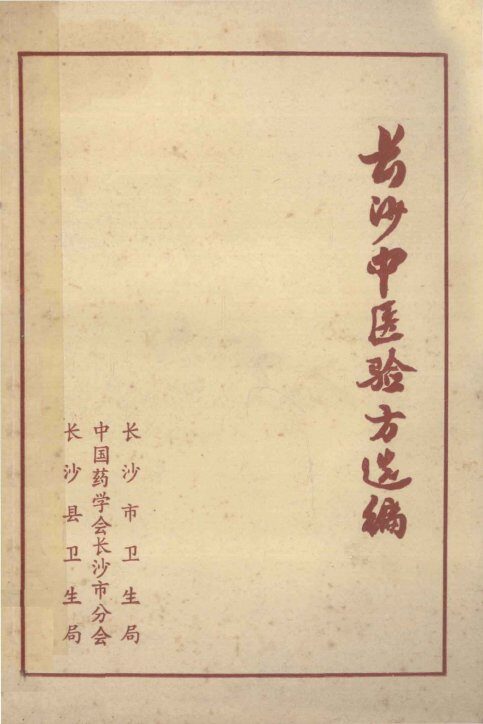 长沙中医验方选编
长沙市卫生局
中国药学会长沙市分会
长沙县卫生局